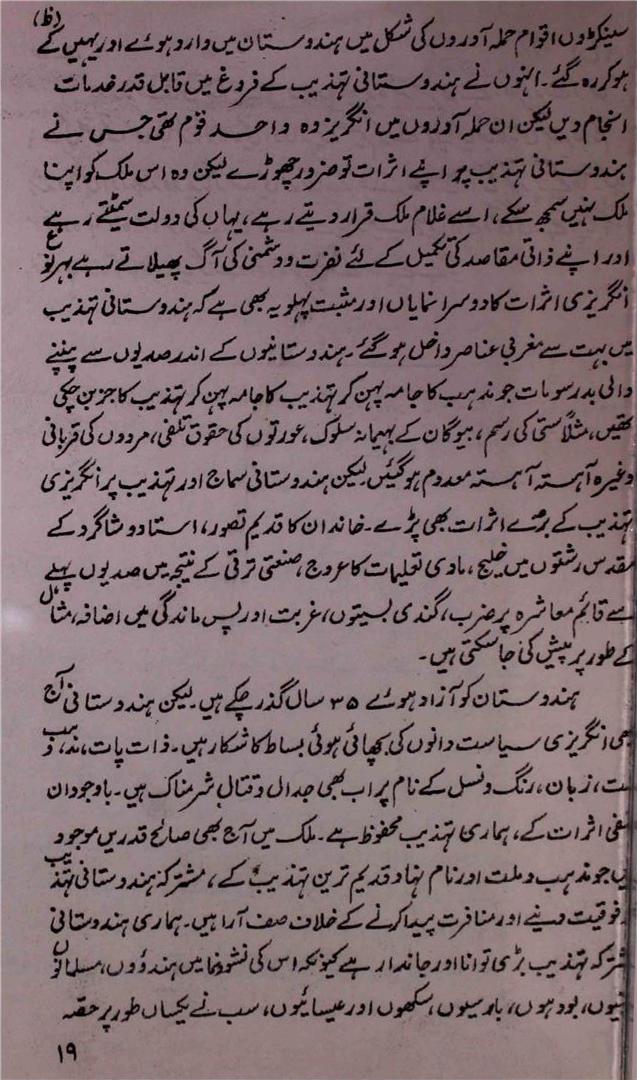 (ظ)
سینکڑوں اقوام حملہ آوروں کی شکل میں ہندوستان میں وارد ہوئے اور یہیں کے
ہو کر رہ گئے۔ انہوں نے ہندوستانی تہذیب کے فروغ میں قابل قدر خدمات
انجام دیں لیکن ان حملہ آوروں میں انگریز وہ واحد قوم تھی جس نے
ہندوستانی تہذیب پر اپنے اثرات تو ضرور چھوڑے لیکن وہ اس ملک کو اپنا
ملک نہیں سمجھ سکے، اسے غلام ملک قرار دیتے رہے، یہاں کی دولت سمیٹتے رہے
اور اپنے ذاتی مقاصد کی تکمیل کے لئے نفرت و دشمنی کی آگ پھیلاتے رہے بہر نوع
انگریزی اثرات کا دوسرا نمایاں اور مثبت پہلو یہ بھی ہے کہ ہندوستانی تہذیب
میں بہت سے مغربی عناصر داخل ہو گئے۔ ہندوستانیوں کے اندر صدیوں سے پنپنے
والی بدرسومات جو مذہب کا جامہ پہن کر تہذیب کا جامہ پہن کر تہذیب کا جز بن چکی
تھیں، مثلاً ستی کی رسم، بیوگان کے بہیمانہ سلوک، عورتوں کی حقوق تلفی، مردوں کی قربانی
وغیرہ آہستہ آہستہ معدوم ہو گئیں لیکن ہندوستانی سماج اور تہذیب پر انگریزی
تہذیب کے بڑے اثرات بھی پڑے۔ خاندان کا قدیم تصور، استاد و شاگرد کے
مقدس رشتوں میں خلیج، مادی تعلیمات کا عروج، صنعتی ترقی کے نتیجہ میں صدیوں پہلے
سے قائم معاشرہ پر ضرب، گندی بستیوں، غربت اور پس ماندگی میں اضافہ، مثال
کے طور پر پیش کی جا سکتی ہیں۔
ہندوستان کو آزاد ہوئے ۳۵ سال گذر چکے ہیں۔ لیکن ہندوستانی آج
بھی انگریزی سیاست دانوں کی بچھائی ہوئی بساط کا شکار ہیں۔ ذات پات، مذہب و
ملت، زبان، رنگ و نسل کے نام پر اب بھی جدال و قتال شرمناک ہیں۔ باوجود ان
منفی اثرات کے، ہماری تہذیب محفوظ ہے۔ ملک میں آج بھی صالح قدریں موجود
ہیں جو مذہب و ملت اور نام نہاد قدیم ترین تہذیب کے، مشترکہ ہندوستانی تہذیب
فوقیت دینے اور منافرت پیدا کرنے کے خلاف صف آرا ہیں۔ ہماری ہندوستانی
مشترکہ تہذیب بڑی توانا اور جاندار ہے کیونکہ اس کی نشوونما میں ہندوؤں، مسلمانوں
جینیوں، بودھوں، پارسیوں، سکھوں اور عیسائیوں، سب نے یکساں طور پر حصہ
۱۹